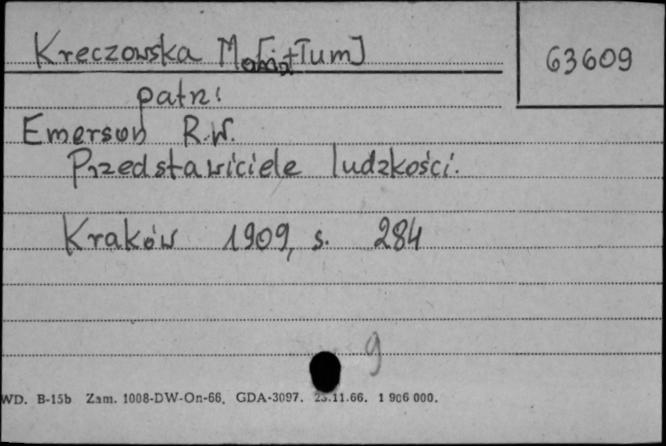 Kreczowska Maria [tłum]
63609
patrz:
Emerson R.W.
Przedstawiciele ludzkości.
Kraków 1909, s. 284
9
WD. B-15b Zam. 1008-DW-On-66. GDA-3097. 23.11.66. 1 906 000.